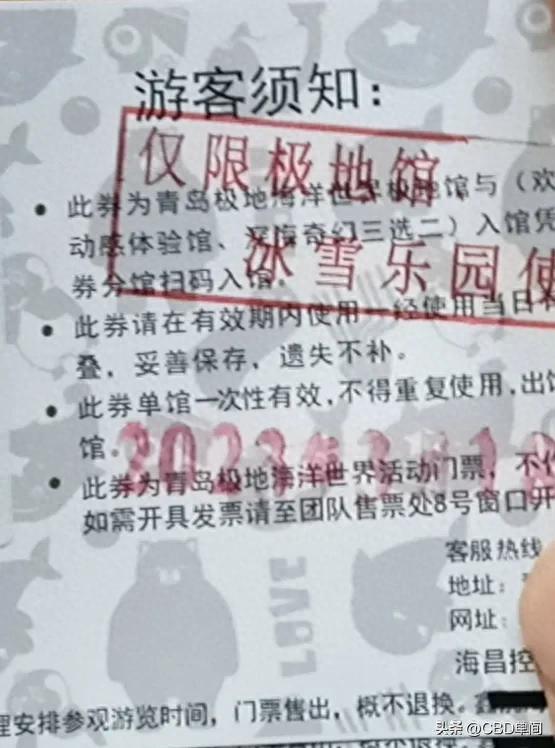 游客须知:
仅限极地馆
此券为青岛极地海洋世界极地馆与（欢
动感体验馆、深海奇幻三选二）入馆凭
冰雪乐园使
券分馆扫码入馆.
此券请在有效期内使用一经使用当日
叠，妥善保存，遗失不补。
此券单馆一次性有效,不得重复使用,出馆
馆。
此券为青岛极地海洋世界活动门票，不
如需开具发票请至团队售票处8号窗口开
客服热线
地址：
网址：
海昌控
理安排参观游览时间，门票售出，概不退换。
LOVE
头条 @CBD单间